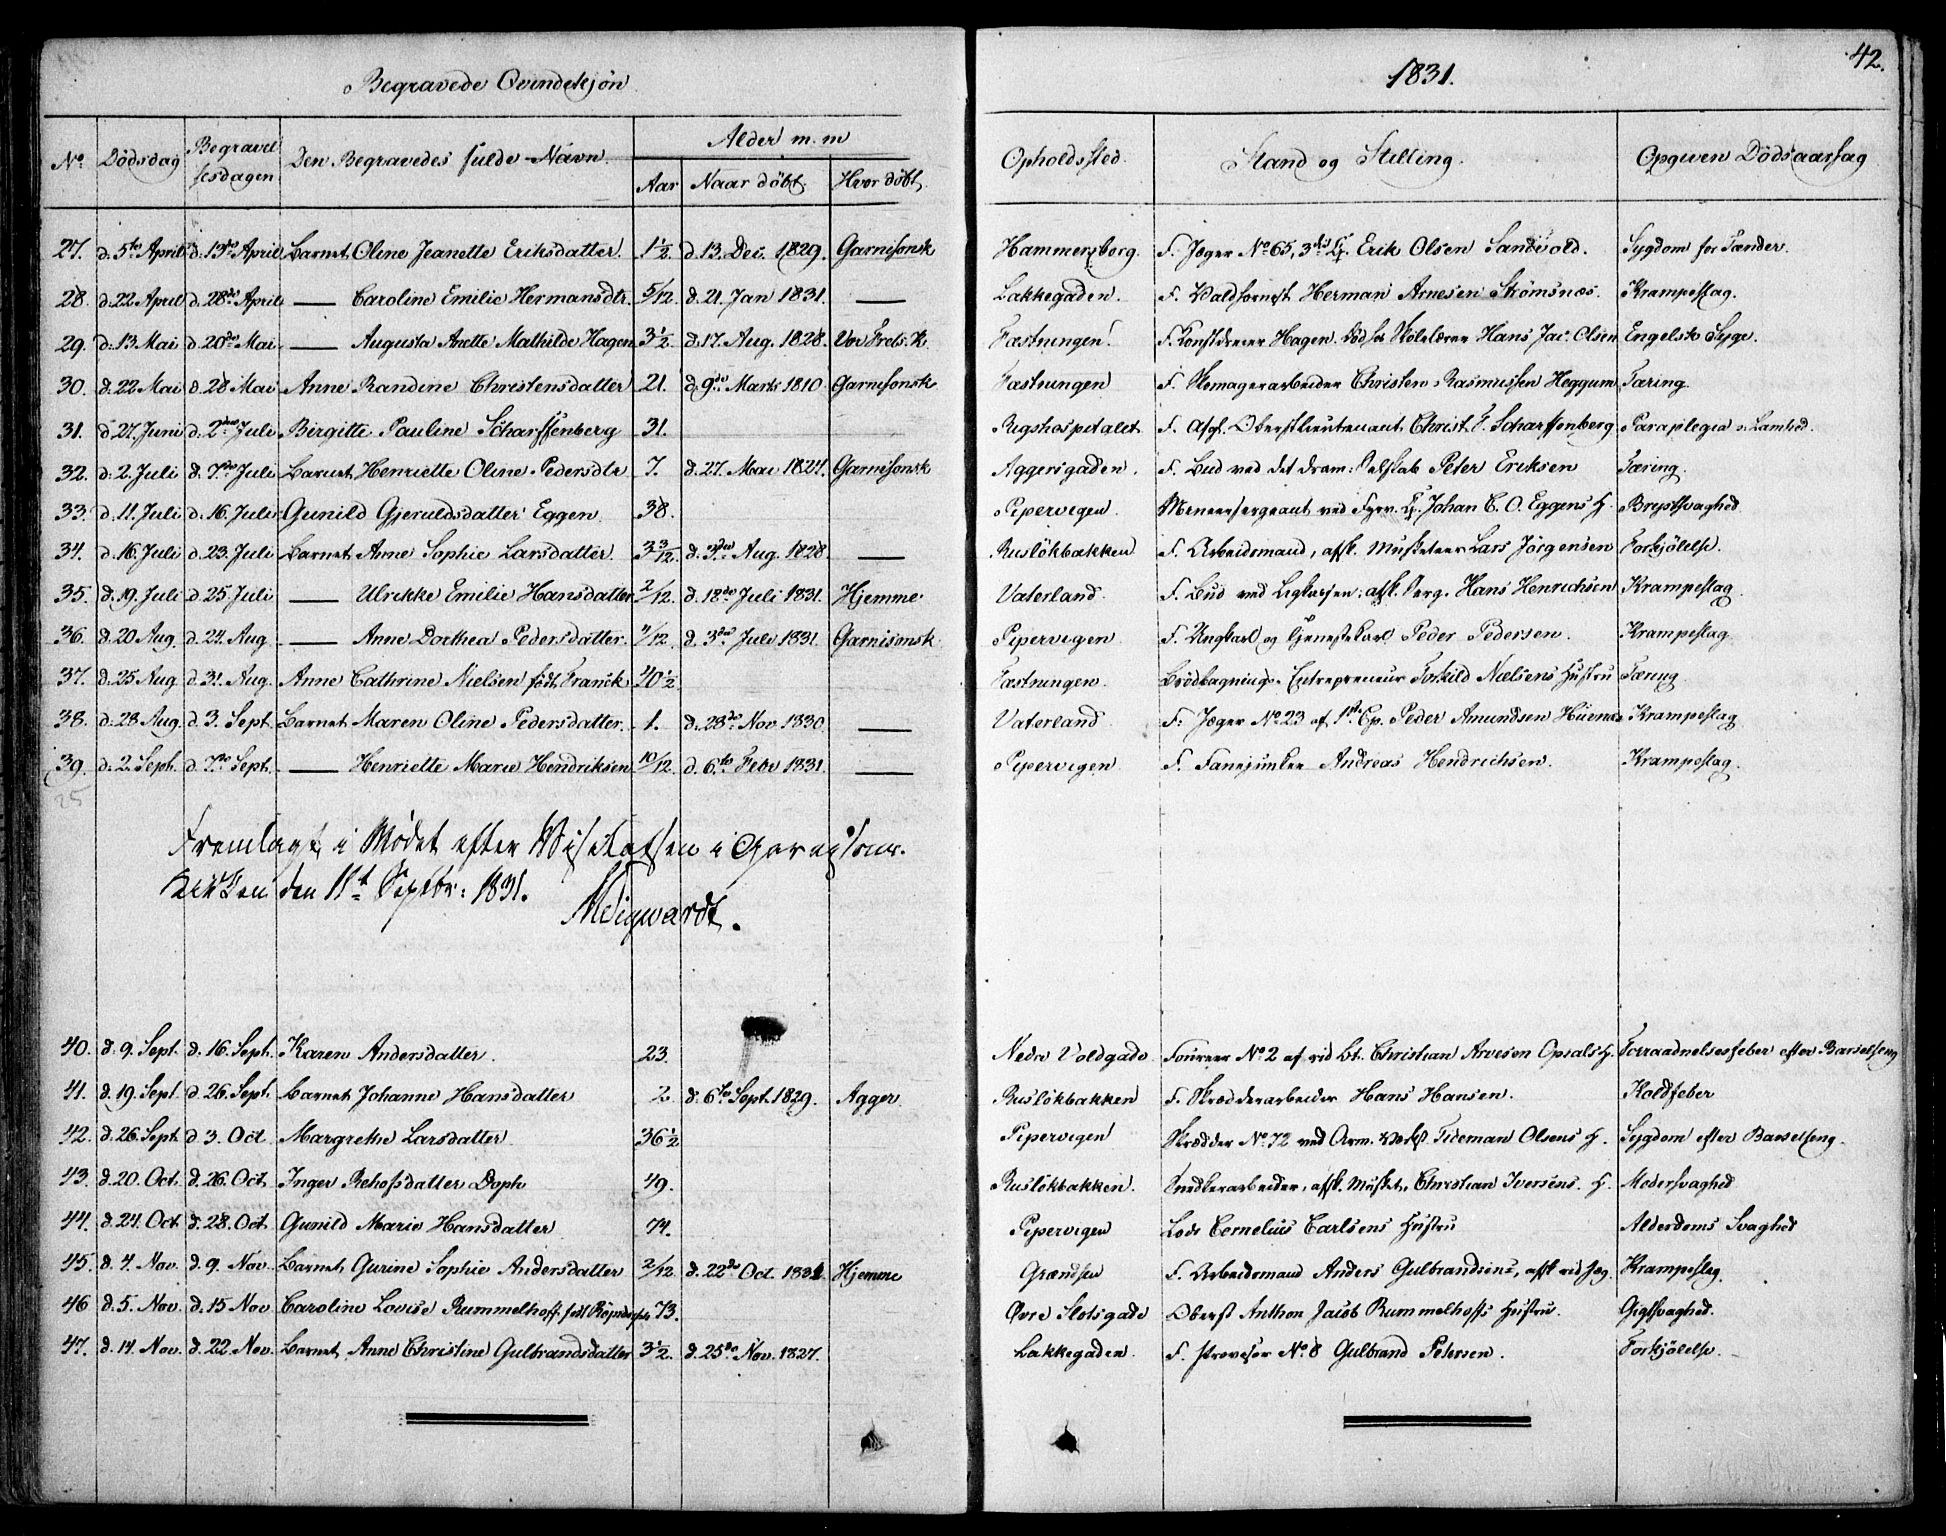 42.
Begravede Qvindekjøn 1831.
No. Dödsdag Begravelsesdagen Den Begravedes fulde Navn. Alder m. m Opholdssted. Stand og Stilling. Opgiven Dödsaarsag
Aar Naar döbt. Hvor döbt.
27. d. 5te April d. 13de April Barnet Oline Jeanette Eriksdatter. 1½ d. 13. Dec. 1829. Garnisonsk Hammersborg. F. Jæger No 65, 3die Erik Olsen Sandvold. Sygdom for Tænder.
28. d. 22 April d. 28de April — Caroline Emilie Hermansdtr. 5/12. d. 21. Jan 1831. — Lakkegaden. F. Herman Arnesen Strömsnæs. Krampeslag.
29. d. 13 Mai d. 20de Mai — Augusta Anette Mathilde Hagen 3½. d. 17. Aug. 1828. Vor Frels. K. Fæstningen. F. Hagen. Skolelærer Hans Jac. Olsen Engelsk Syge.
30. d. 22 Mai d. 28 Mai Anne Randine Christensdatter 21. d. 9de Marts 1810. Garnisonsk Fæstningen F. Skomagerarbeider Christen Rasmussen Heggum Tæring.
31. d. 27. Juni d. 2den Juli Birgitte Pauline Scharffenberg 31. Rigshospitalet F. Afsk. Oberstlieutenant Christ. F. Scharffenberg. Paraplegia Lamhed.
32. d. 2. Juli d. 7de Juli Barnet Henriette Oline Pedersdtr 7. d. 27. Mai 1824. Garnisonsk Aggersgaden. F. Bud ved det dram: Selskab Peter Eriksen Tæring.
33. d. 11. Juli d. 16. Juli Gunild Gjeruldsdatter Eggen. 38. Pipervigen. ved Johan C. O. Eggens H. Brystsvaghed
34. d. 16. Juli d. 23. Juli Barnet Anne Sophie Larsdatter. 3 3/12. d. 3die Aug. 1828. — Ruslökbakken F. Arbeidsmand, afsk. Musketeer Lars Jörgensen Forkjölelse.
35. d. 19. Juli d. 25. Juli — Ulrikke Emilie Hansdatter 2/12. d. 18de Juli 1831. Hjemme. Vaterland. F. Bud ved afsk. Serg. Hans Henrichsen Krampeslag.
36. d. 20 Aug. d. 24. Aug — Anne Dorthea Pedersdatter. /12. d. 3die Juli 1831. Garnisonsk. Pipervigen F. Ungkarl og Tjenestekarl Peder Pedersen. Krampeslag.
37. d. 25 Aug. d. 31. Aug. Anne Cathrine Nielsen född Franck 40½ Fæstningen. Brödbagnings-Entrepreneur Torkild Nielsens Hustru Tæring.
38. d. 28. Aug. d. 3. Sept. Barnet Maren Oline Pedersdatter. 1. d. 28de Nov 1830. — Vaterland F. Jæger No. 23 af 1ste Cp. Peder Amundsen Krampeslag
39. d. 2. Sept. d. 7de Sept. — Henriette Marie Hendriksen 10/12 d. 6te Febr 1831. — Pipervigen F. Fanejunker Andreas Hendrichsen. Krampeslag.
25
Fremlagt i Mödet efter Visitatsen i Garnisons-
Kirken den 11te Septbr: 1831.
40. d. 9. Sept. d. 16. Sept. Karen Andersdatter. 23. Nedre Voldgade Foureer No 2 af rid Bt. Christian Arvesen Opsals H. Forraadnelsesfeber efter Barselseng
41. d. 19. Sept d. 26. Sept. Barnet Johanne Hansdatter 2 d. 6te Sept. 1829. Agger. Ruslökbakken F. Skrædderarbeider Hans Hansen. Koldfeber
42. d. 26. Sept d. 3. Oct. Margrethe Larsdatter. 36½ Pipervigen Skrædder No. 72 ved Arm. Tideman Olsens H. Sygdom efter Barselseng.
43. d. 20. Oct. d. 26. Oct Inger Doph 49. Ruslökbakken. Snedkerarbeider, afsk. Musket. Christian Iversens. H. Modersvaghed
44. d. 24. Oct d. 28. Oct. Gunild Marie Hansdatter 74. Pipervigen Lods Cornelius Carlsens Hustru Alderdoms Svaghed
45. d. 4. Nov. d. 9. Nov. Barnet Gurine Sophie Andersdatter 2/12 d. 22de Oct. 1831. Hjemme Grændsen F. Arbeidsmand Anders Gulbrandsens, afsk rid Jæg. Krampeslag.
46 d. 5. Nov. d. 15 Nov Caroline Lovise Rummelhoff, 73. Övre Slotsgade Oberst Anthon Jacob Rummelhoffs Hustru. Gigtsvaghed.
47. d. 14. Nov. d. 22. Nov. Barnet Anne Christine Gulbrandsdatter 3½. d. 25de Nov. 1827. Lakkegaden. F. No 8 Gulbrand Petersen. Forkjölelse.